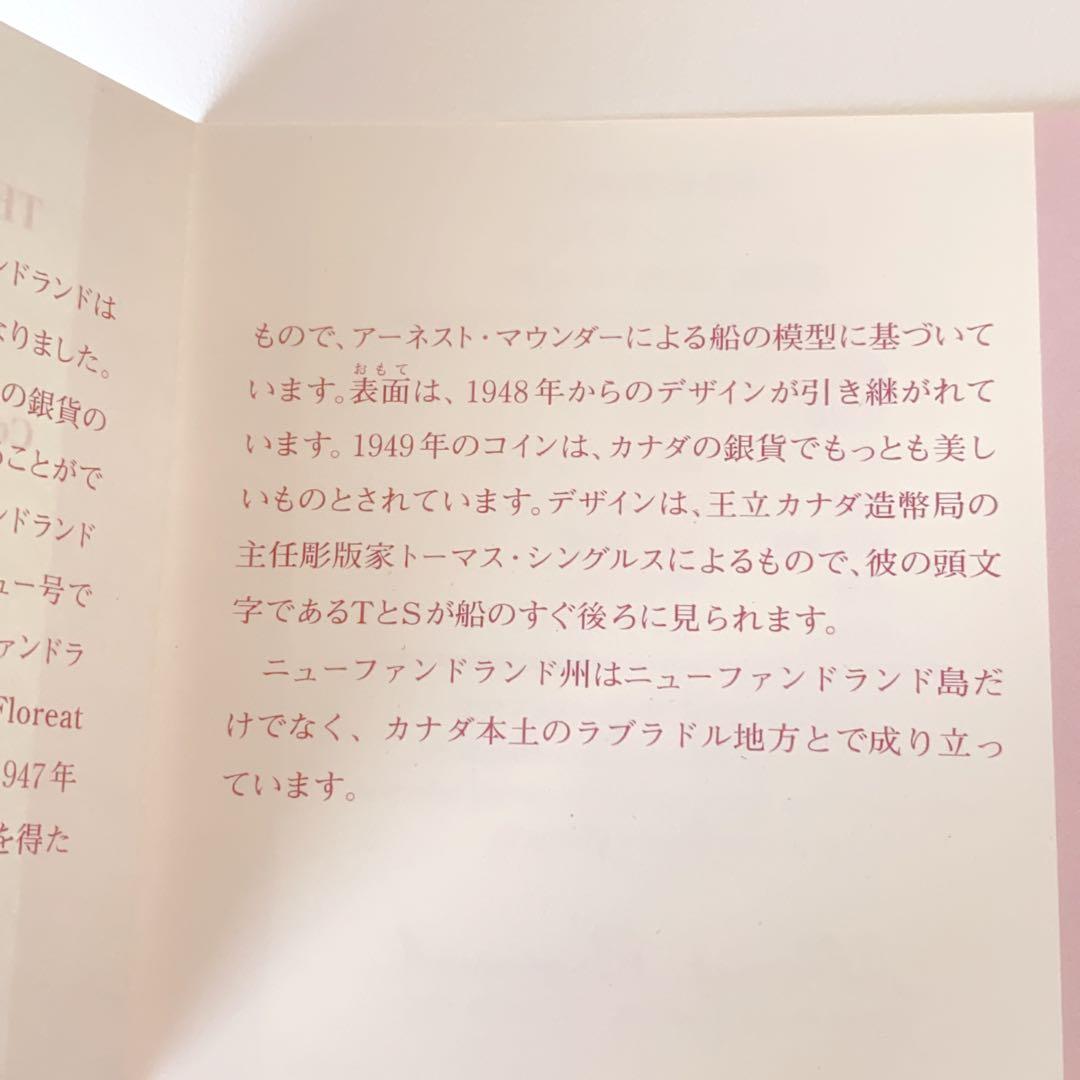 ンドランドは
なりました。
の銀貨の
ることがで
ンドランド
ュー号で
ァンドラ
Floreat
1947年
を得た
もので、アーネスト・マウンダーによる船の模型に基づいて
おもて
います。表面は、1948年からのデザインが引き継がれて
います。1949年のコインは、カナダの銀貨でもっとも美し
いものとされています。デザインは、王立カナダ造幣局の
主任彫版家トーマス・シングルスによるもので、彼の頭文
字であるTとSが船のすぐ後ろに見られます。
ニューファンドランド州はニューファンドランド島だ
けでなく、カナダ本土のラブラドル地方とで成り立っ
ています。